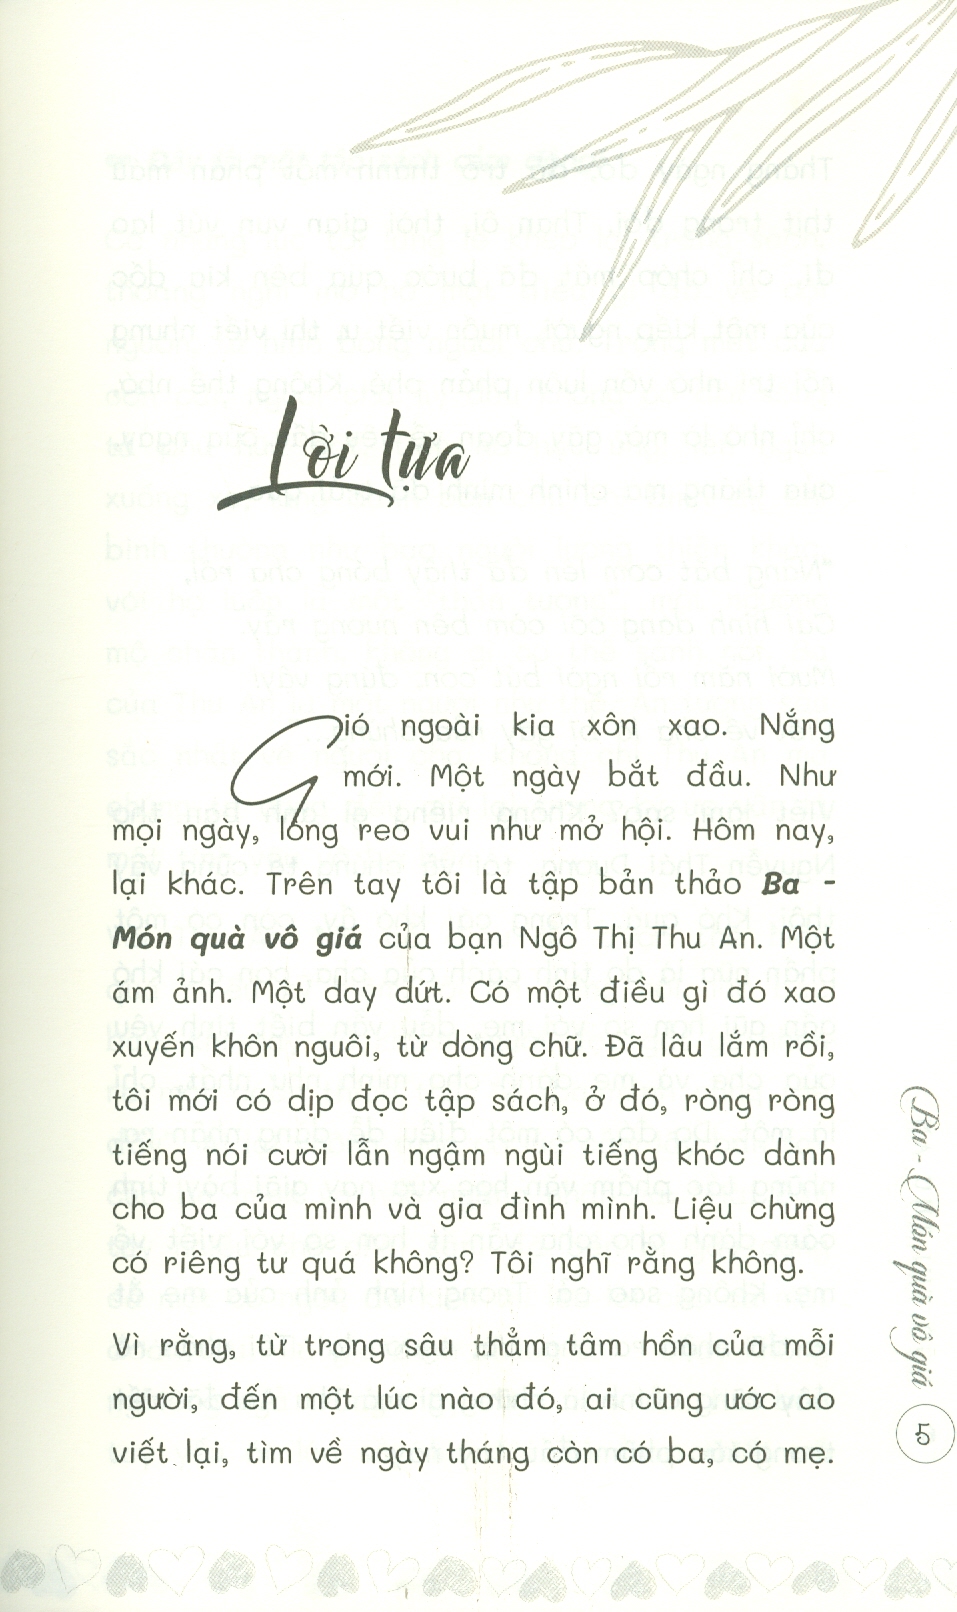 Lời tựa
Gió ngoài kia xôn xao. Nắng
mới. Một ngày bắt đầu. Như
mọi ngày, lòng reo vui như mở hội. Hôm nay,
lại khác. Trên tay tôi là tập bản thảo Ba -
Món quà vô giá của bạn Ngô Thị Thu An. Một
ám ảnh. Một day dứt. Có một điều gì đó xao
xuyến khôn nguôi, từ dòng chữ. Đã lâu lắm rồi,
tôi mới có dịp đọc tập sách, ở đó, ròng ròng
tiếng nói cười lẫn ngậm ngùi tiếng khóc dành
cho ba của mình và gia đình mình. Liệu chừng
có riêng tư quá không? Tôi nghĩ rằng không.
Vì rằng, từ trong sâu thẳm tâm hồn của mỗi
người, đến một lúc nào đó, ai cũng ước ao
viết lại, tìm về ngày tháng còn có ba, có mẹ.
Ba - Món quà vô giá
5